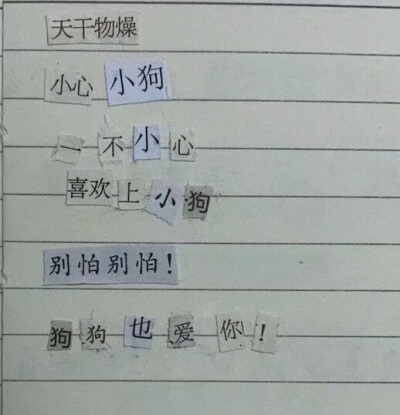 天干物燥
小心小狗
一不小心
喜欢上小狗
别怕别怕!
狗狗也爱你!